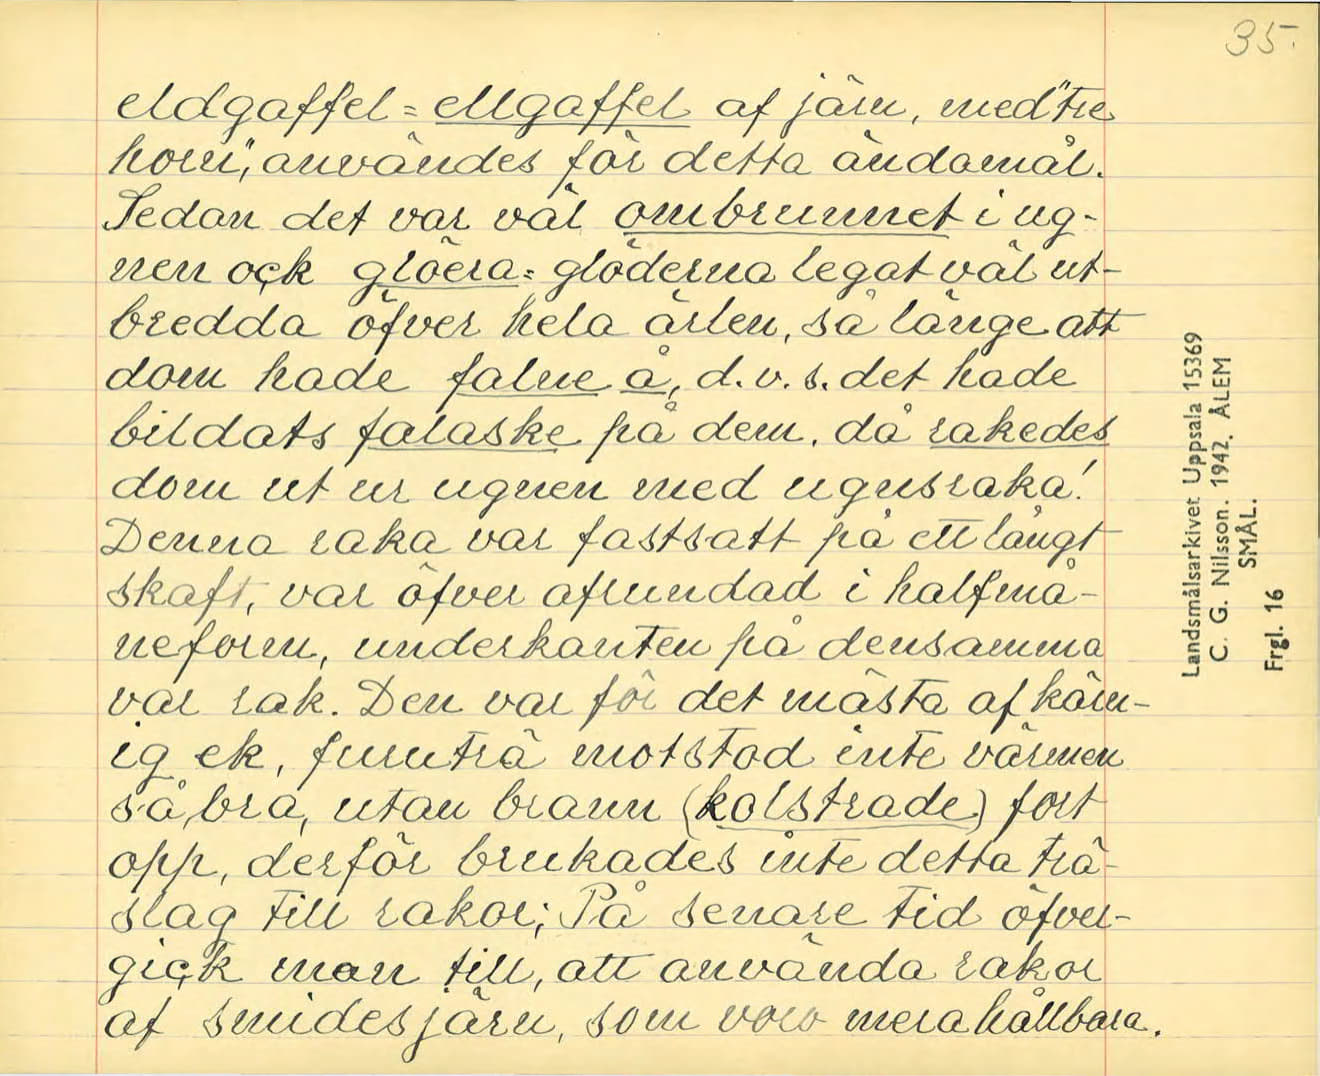 35.
eldgaffel = ellgaffel af järn, med "tre
horn", användes för detta ändamål.
Sedan det var väl ombrunnet i ug-
nen ock glöera = glöderna legat väl ut-
bredda öfver hela ärlen, så länge att
dom hade falne å, d.v.s. det hade
bildats falaske på dem, då rakedes
dom ut ur ugnen med ugnsraka!
Denna raka var fastsatt på ett långt
skaft, var öfver afrundad i halfmå-
neform, underkanten på densamma
var rak. Den var för det mästa af kärn-
ig ek, furuträ motstod inte värmen
så bra, utan brann (kolstrade) fort
opp, derför brukades inte detta trä-
slag till rakor; På senare tid öfver-
gick man till, att använda rakor
af smidesjärn, som voro mera hållbara.
Landsmålsarkivet Uppsala 15369
C. G. Nilsson. 1942. ÅLEM
SMÅL.
Frgl. 16